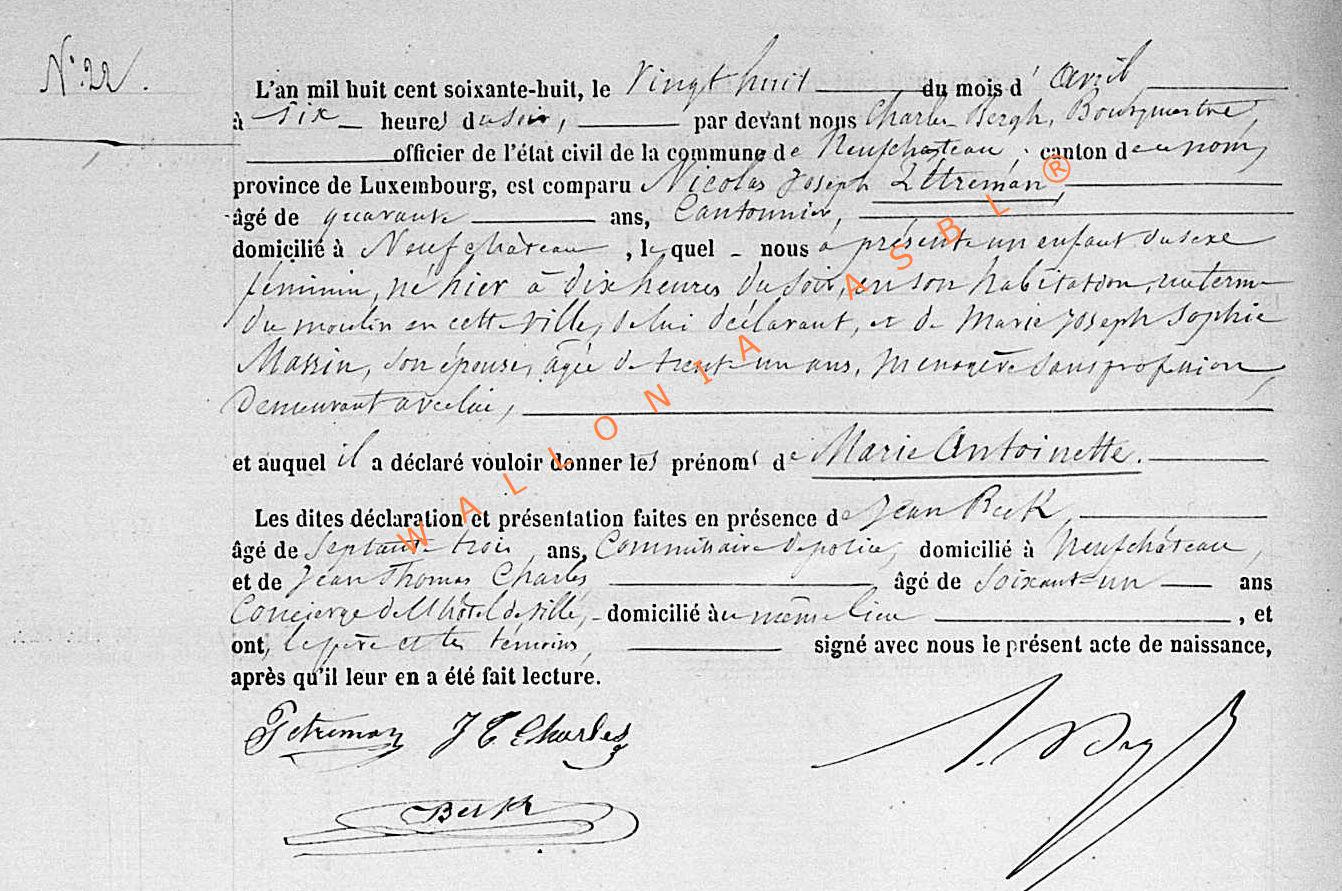 N° 22.
L'an mil huit cent soixante-huit, le vingt huit du mois d'avril
à six heures du soir, par devant nous Charles Bergh, Bourgmestre,
officier de l'état civil de la commune de Neufchateau, canton de ce nom,
province de Luxembourg, est comparu Nicolas Joseph
âgé de quarante ans, Cantonnier,
domicilié à Neufchâteau, lequel nous a présenté un enfant du sexe
féminin, né hier à dix heures du soir, en son habitation,
du moulin en cette ville, de lui déclarant, et de Marie Joseph Sophie
Massin, son épouse, âgée de trente un ans, menagère sans profession,
demeurant avec lui,
et auquel il a déclaré vouloir donner les prénoms de Marie Antoinette.
Les dites déclaration et présentation faites en présence de Jean
âgé de septante trois ans, Commissaire de police, domicilié à Neufchâteau,
et de Jean Thomas Charles âgé de soixante-un ans
Concierge de l'hôtel de ville, domicilié au même lieu, et
ont, le père et les temoins, signé avec nous le présent acte de naissance,
après qu'il leur en a été fait lecture.
J T Charles
WALLONIA ASBL ®